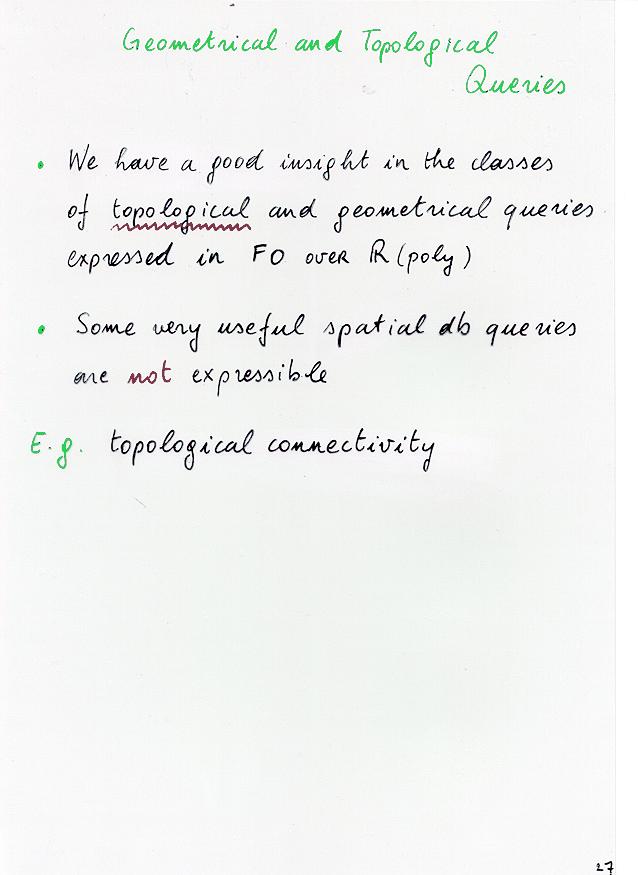 Geometrical and Topological
Queries
• We have a good insight in the classes
of topological and geometrical queries
expressed in FO over R (poly)
• Some very useful spatial db queries
are not expressible
E.g. topological connectivity
27